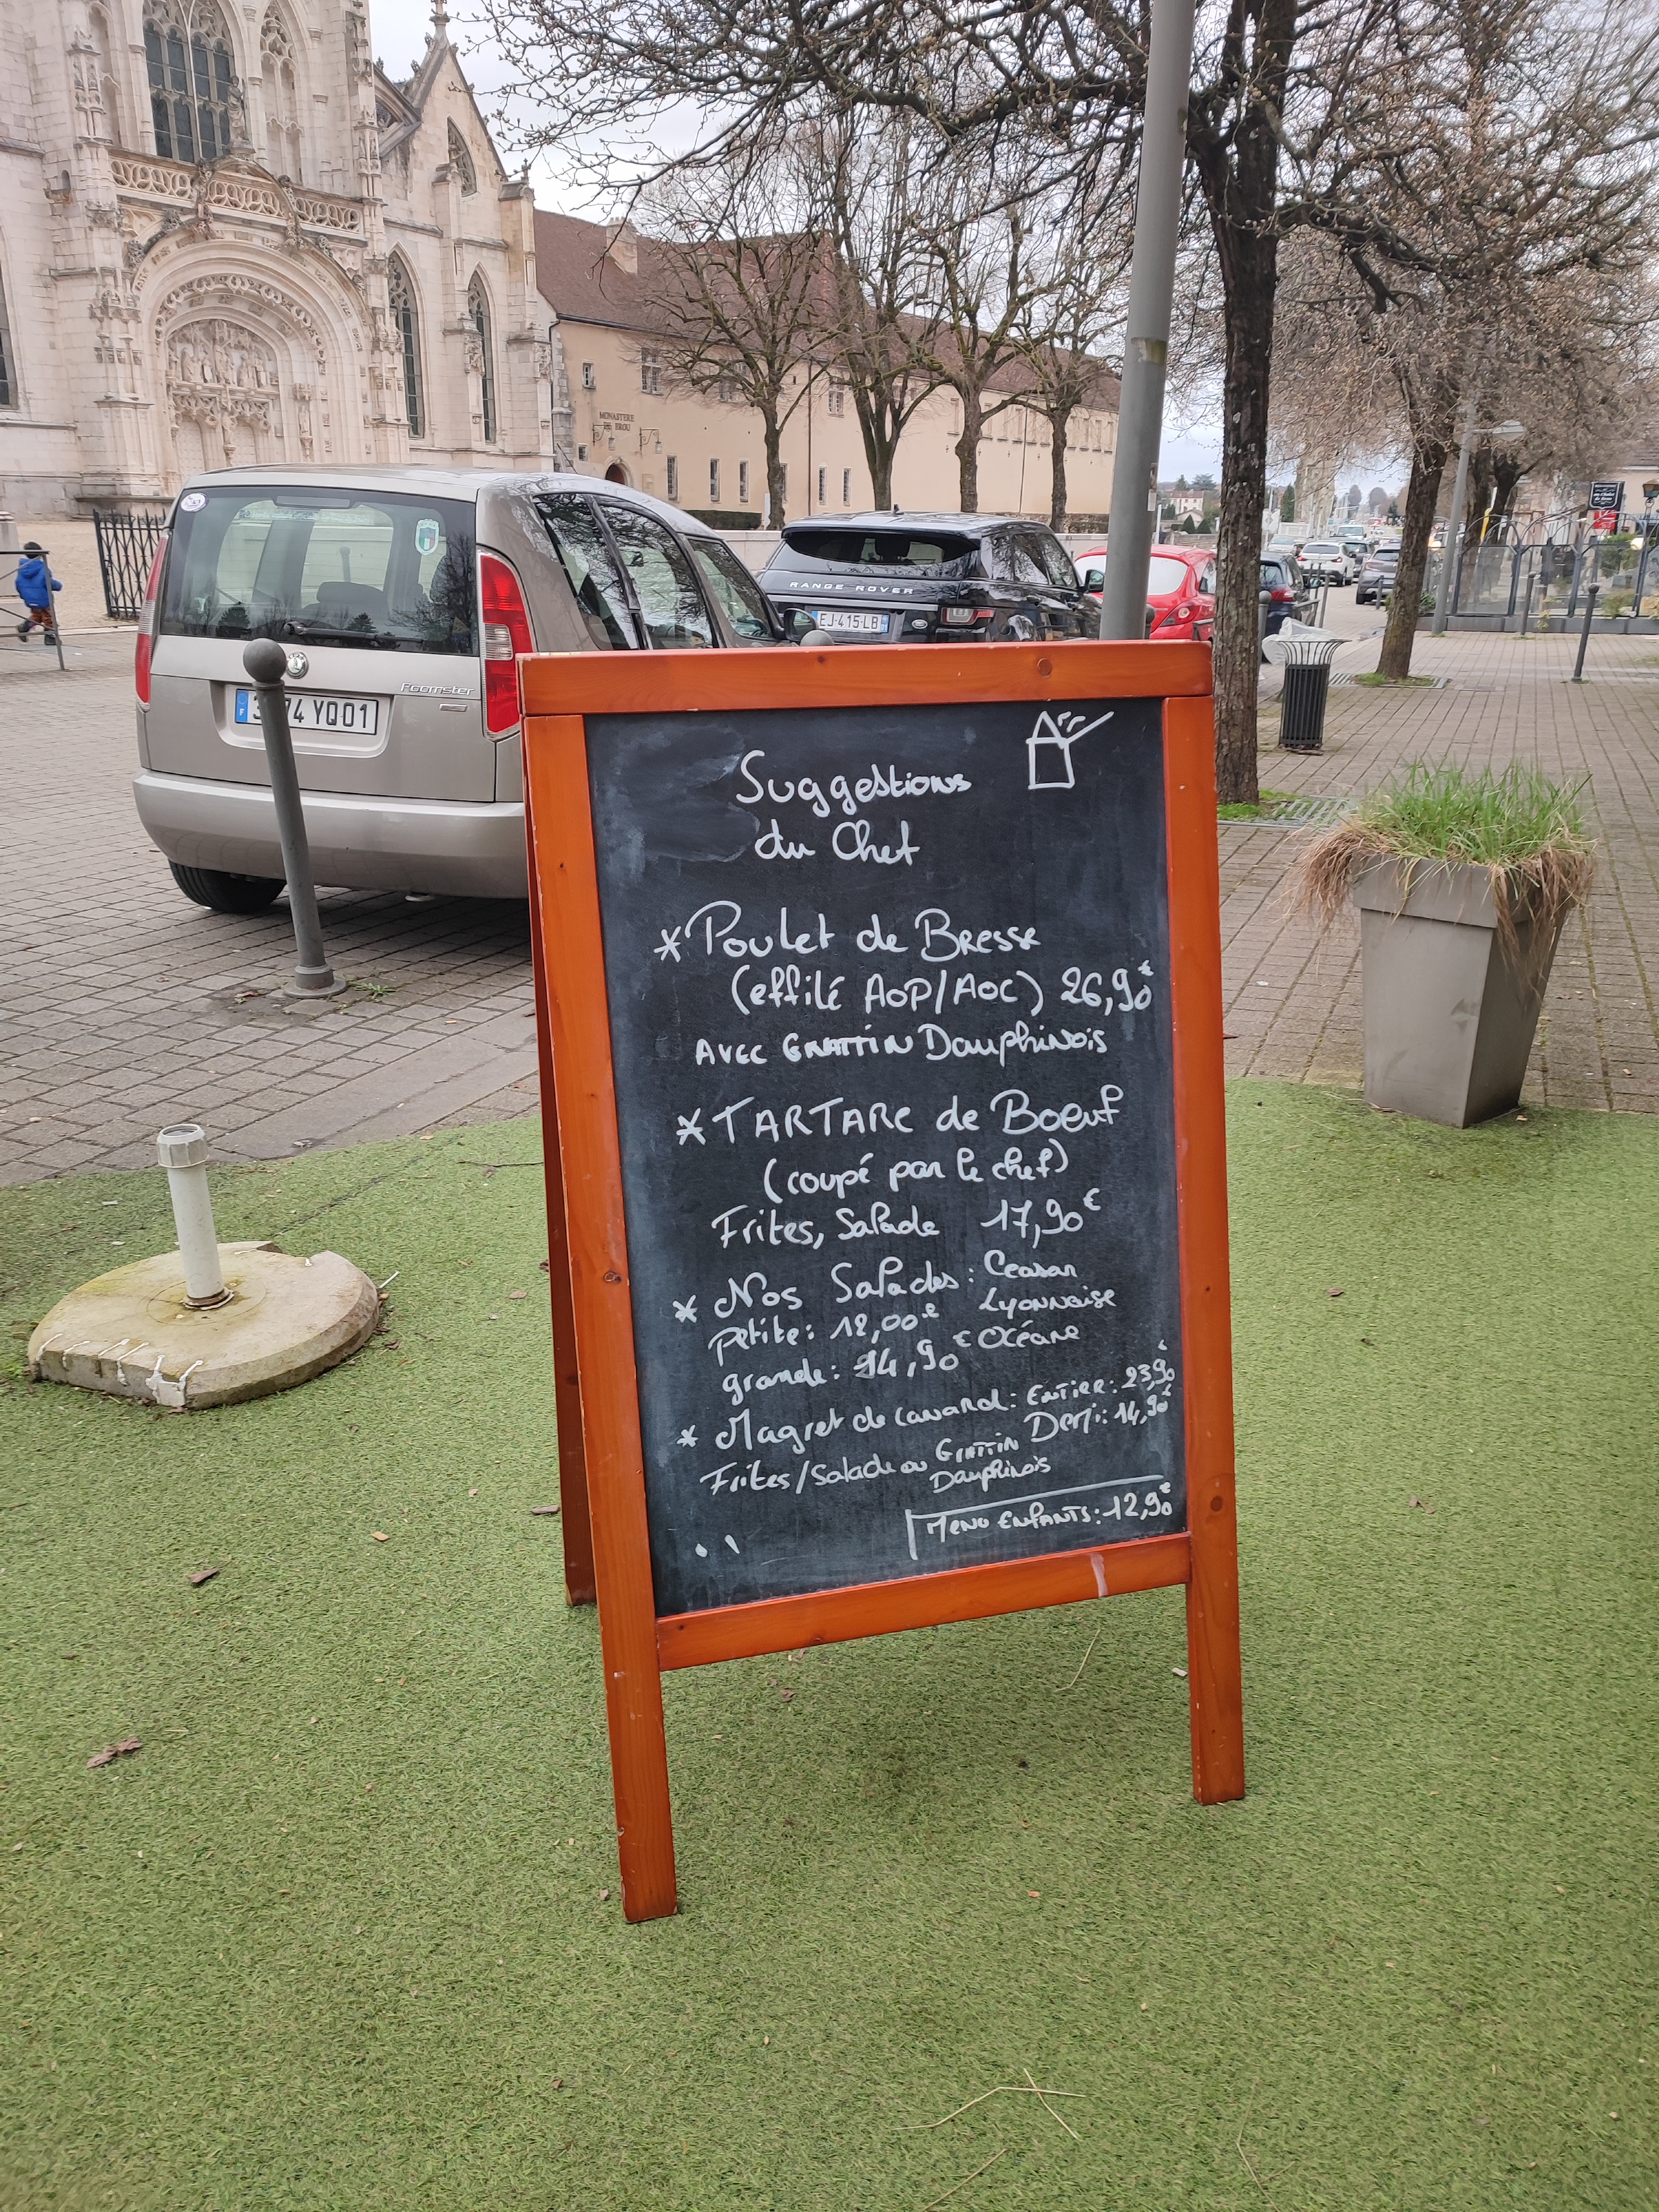 MONASTERE
DE BROU
RANGE ROVER
EJ-415-LB
Roomster
F
74 YQ 01
Suggestions
du Chef
* Poulet de Bresse
(effilé AOP/AOC) 26,90€
AVEC GRATTIN Dauphinois
* TARTARE de Boeuf
(coupé par le chef)
Frites, Salade 17,90€
* Nos Salades : Ceasar
petite : 12,00€ Lyonnaise
grande : 14,90€ Océane
* Magret de Canard : Entier : 23,90€
Demi : 14,90€
Frites/Salade ou GRATTIN
Dauphinois
MENU ENFANTS : 12,90€